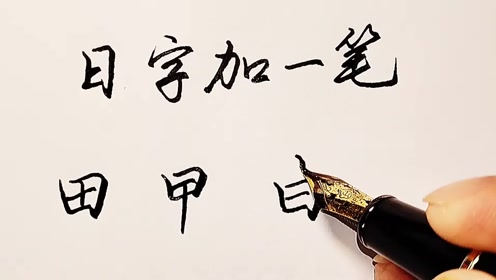 日字加一笔
田 甲 日